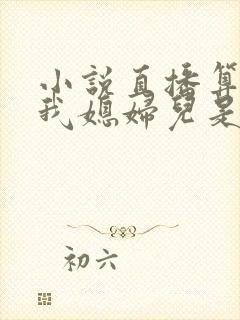 小說直播算
我媳婦兒是
初六